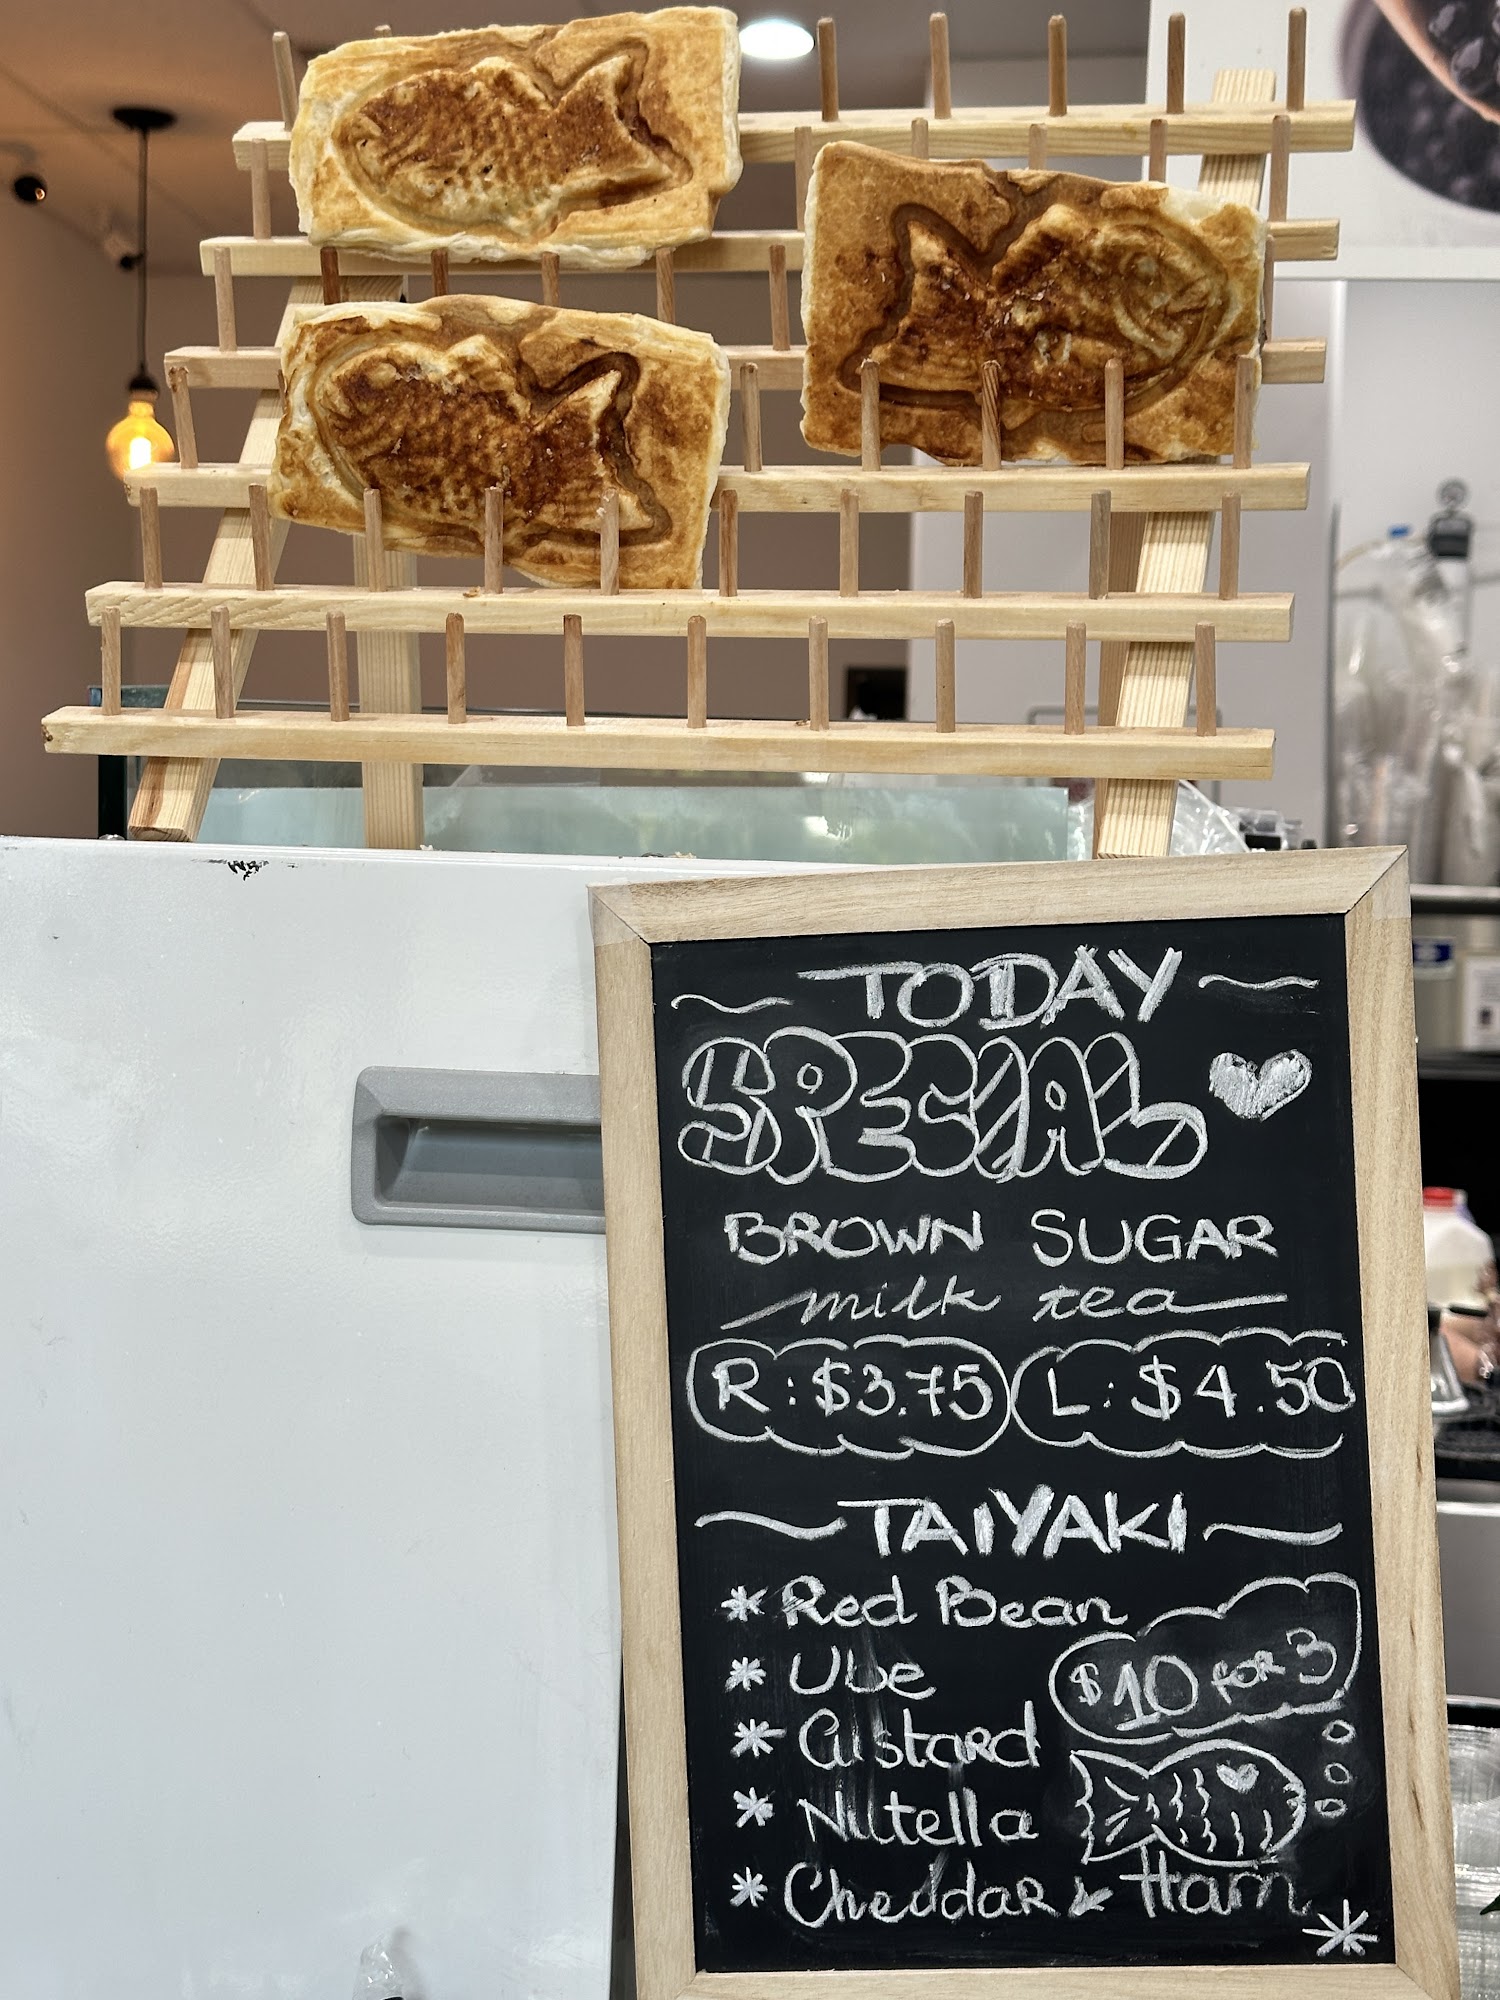 TODAY
SPECIAL
BROWN SUGAR
milk tea
R: $3.75 L: $4.50
TAIYAKI
* Red Bean
* Ube
$10 FOR 3
* Custard
* Nutella
* Cheddar & Ham *